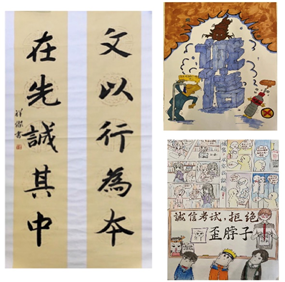 文以行為本
在先誠其中
诚信
誠信考试，拒绝
歪脖子